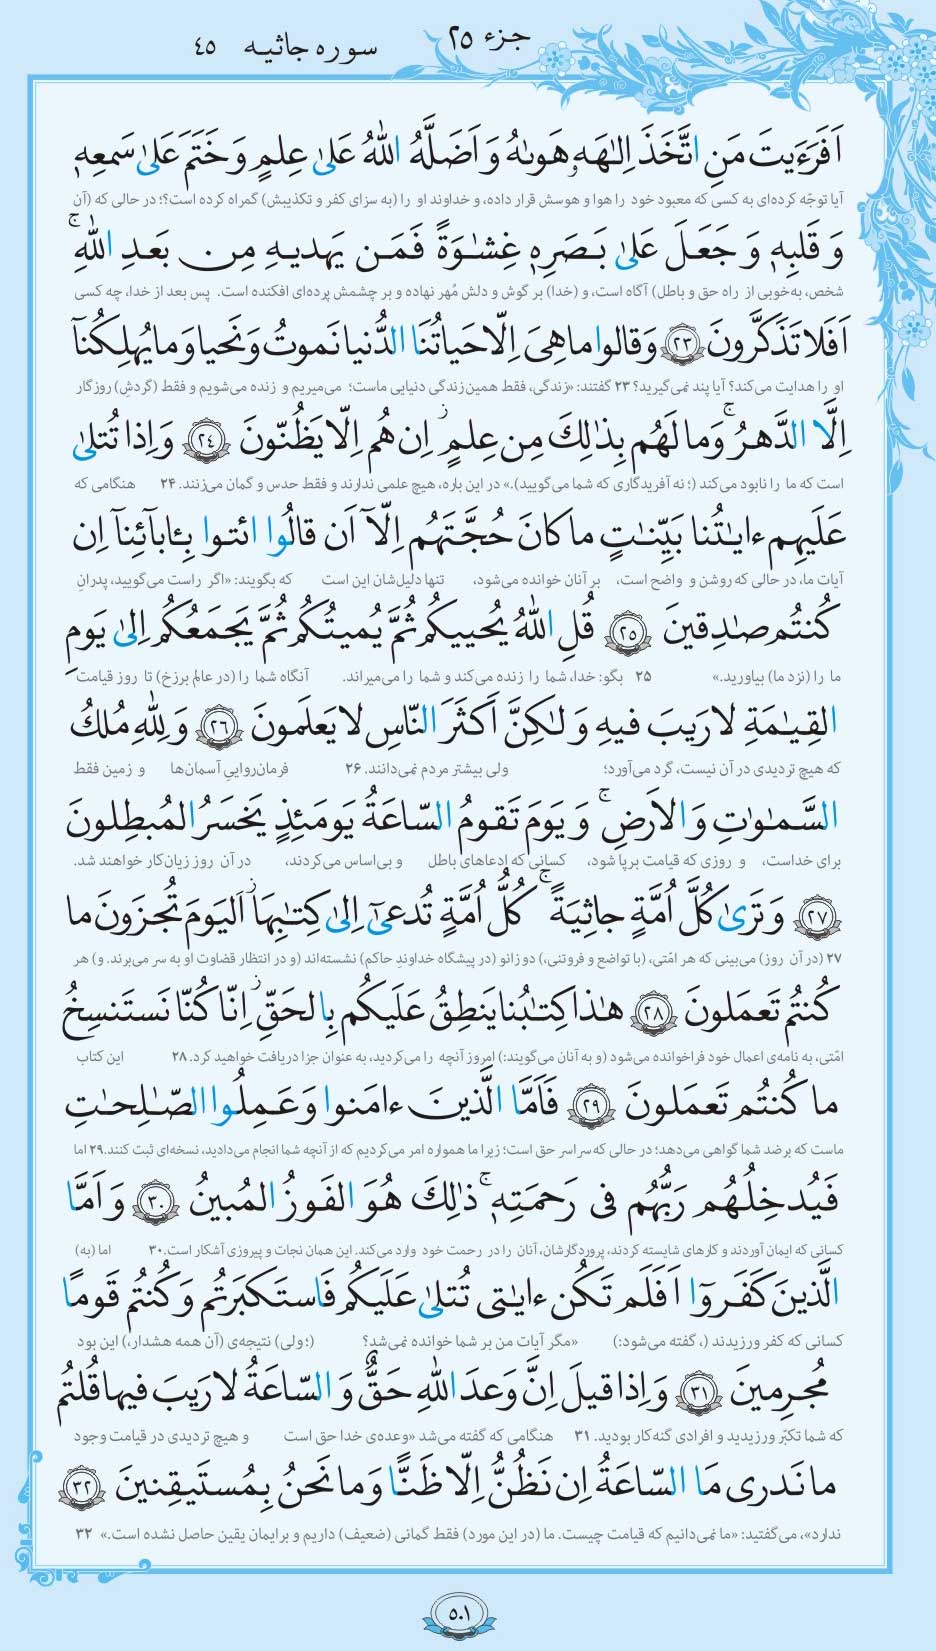 جزء ۲۵
سوره جاثیه ۴۵
اَفَرَءَیتَ مَنِ اتَّخَذَ اِلٰهَهٗ هَوىٰهُ وَ اَضَلَّهُ اللّٰهُ عَلىٰ عِلمٍ وَ خَتَمَ عَلىٰ سَمعِهٖ
آیا توجّه کرده‌ای به کسی که معبود خود را هوا و هوسش قرار داده، و خداوند او را (به سزای کفر و تکذیبش) گمراه کرده است؟؛ در حالی که (آن
وَ قَلبِهٖ وَ جَعَلَ عَلىٰ بَصَرِهٖ غِشٰوَةً فَمَن یَهدیهِ مِن بَعدِ اللّٰهِۚ
شخص، به‌خوبی از راه حق و باطل) آگاه است، و (خدا) بر گوش و دلش مُهر نهاده و بر چشمش پرده‌ای افکنده است. پس بعد از خدا، چه کسی
اَفَلا تَذَكَّرونَ ﴿۲۳﴾ وَ قالوا ما هِیَ اِلّا حَیاتُنَا الدُّنیا نَموتُ وَ نَحیا وَ ما یُهلِكُنآ
او را هدایت می‌کند؟ آیا پند نمی‌گیرید؟ ۲۳ گفتند: «زندگی، فقط همین‌زندگی دنیایی ماست؛ می‌میریم و زنده می‌شویم و فقط (گردشِ) روزگار
اِلَّا الدَّهرُۚ وَ ما لَهُم بِذٰلِكَ مِن عِلمٍۖ اِن هُم اِلّا یَظُنّونَ ﴿۲۴﴾ وَ اِذا تُتلىٰ
است که ما را نابود می‌کند (؛ نه آفریدگاری که شما می‌گویید).» در این باره، هیچ علمی ندارند و فقط حدس و گمان می‌زنند. ۲۴ هنگامی که
عَلَیهِم ءایٰتُنا بَیِّنٰتٍ ما كانَ حُجَّتَهُم اِلّآ اَن قالُوا ائتوا بِـٔابآئِنآ اِن
آیات ما، در حالی که روشن و واضح است، بر آنان خوانده می‌شود، تنها دلیل‌شان این است که بگویند: «اگر راست می‌گویید، پدرانِ
كُنتُم صٰدِقینَ ﴿۲۵﴾ قُلِ اللّٰهُ یُحییكُم ثُمَّ یُمیتُكُم ثُمَّ یَجمَعُكُم اِلىٰ یَومِ
ما را (نزد ما) بیاورید.» ۲۵ بگو: خدا، شما را زنده می‌کند و شما را می‌میراند. آنگاه شما را (در عالم برزخ) تا روز قیامت
القِیٰمَةِ لا رَیبَ فیهِ وَ لٰكِنَّ اَكثَرَ النّاسِ لا یَعلَمونَ ﴿۲۶﴾ وَ لِلّٰهِ مُلكُ
که هیچ تردیدی در آن نیست، گرد می‌آورد؛ ولی بیشتر مردم نمی‌دانند. ۲۶ فرمان‌رواییِ آسمان‌ها و زمین فقط
السَّمٰوٰتِ وَ الاَرضِۚ وَ یَومَ تَقومُ السّاعَةُ یَومَئِذٍ یَخسَرُ المُبطِلونَ
برای خداست، و روزی که قیامت برپا شود، کسانی که ادعاهای باطل و بی‌اساس می‌کردند، در آن روز زیان‌کار خواهند شد.
﴿۲۷﴾ وَ تَرىٰ كُلَّ اُمَّةٍ جاثِیَةًۚ كُلُّ اُمَّةٍ تُدعىٰٓ اِلىٰ كِتٰبِهَاۖ الیَومَ تُجزَونَ ما
۲۷ (در آن روز) می‌بینی که هر امّتی، (با تواضع و فروتنی،) دو زانو (در پیشگاه خداوندِ حاکم) نشسته‌اند (و در انتظار قضاوت او به سر می‌برند. و) هر
كُنتُم تَعمَلونَ ﴿۲۸﴾ هٰذا كِتٰبُنا یَنطِقُ عَلَیكُم بِالحَقِّۖ اِنّا كُنّا نَستَنسِخُ
امّتی، به نامه‌ی اعمال خود فراخوانده می‌شود (و به آنان می‌گویند:) امروز آنچه را می‌کردید، به عنوان جزا دریافت خواهید کرد. ۲۸ این کتاب
ما كُنتُم تَعمَلونَ ﴿۲۹﴾ فَاَمَّا الَّذینَ ءامَنوا وَ عَمِلُوا الصّٰلِحٰتِ
ماست که برضد شما گواهی می‌دهد؛ در حالی که سراسر حق است؛ زیرا ما همواره امر می‌کردیم که از آنچه شما انجام می‌دادید، نسخه‌ای ثبت کنند. ۲۹ اما
فَیُدخِلُهُم رَبُّهُم فی رَحمَتِهٖۚ ذٰلِكَ هُوَ الفَوزُ المُبینُ ﴿۳۰﴾ وَ اَمَّا
کسانی که ایمان آوردند و کارهای شایسته کردند، پروردگارشان، آنان را در رحمت خود وارد می‌کند. این همان نجات و پیروزی آشکار است. ۳۰ اما (به)
الَّذینَ كَفَروٓا اَفَلَم تَكُن ءایٰتی تُتلىٰ عَلَیكُم فَاستَكبَرتُم وَ كُنتُم قَومًا
کسانی که کفر ورزیدند (، گفته می‌شود:) «مگر آیات من بر شما خوانده نمی‌شد؟ (؛ولی) نتیجه‌ی (آن همه هشدار،) این بود
مُجرِمینَ ﴿۳۱﴾ وَ اِذا قیلَ اِنَّ وَعدَ اللّٰهِ حَقٌّ وَ السّاعَةُ لا رَیبَ فیها قُلتُم
که شما تکبّر ورزیدید و افرادی گنه‌کار بودید. ۳۱ هنگامی که گفته می‌شد «وعده‌ی خدا حق است و هیچ تردیدی در قیامت وجود
ما نَدری مَا السّاعَةُ اِن نَظُنُّ اِلّا ظَنًّا وَ ما نَحنُ بِمُستَیقِنینَ ﴿۳۲﴾
ندارد»، می‌گفتید: «ما نمی‌دانیم که قیامت چیست. ما (در این مورد) فقط گمانی (ضعیف) داریم و برایمان یقین حاصل نشده است.» ۳۲
۵۰۱